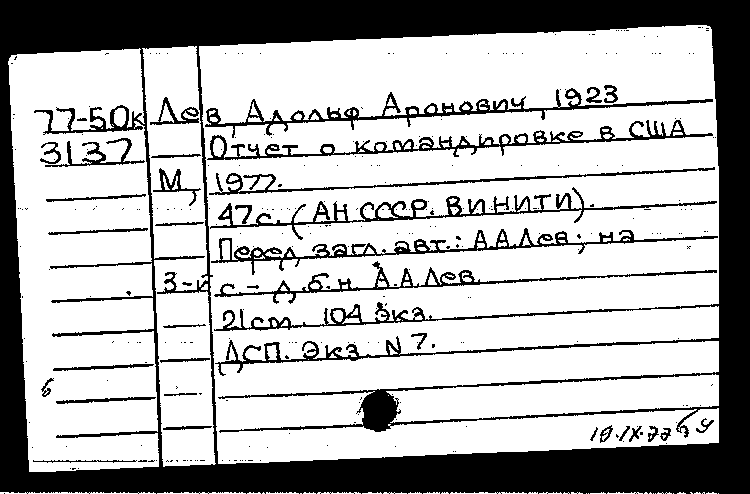 77-50к Лев, Адольф Аронович, 1923
3137 Отчет о командировке в США
М, 1977.
47с. (АН СССР. ВИНИТИ).
Перед загл. авт.: А.А.Лев; на
3-й с. – д.б.н. А.А.Лев.
21см. 104 экз.
ДСП. Экз. N 7.
б